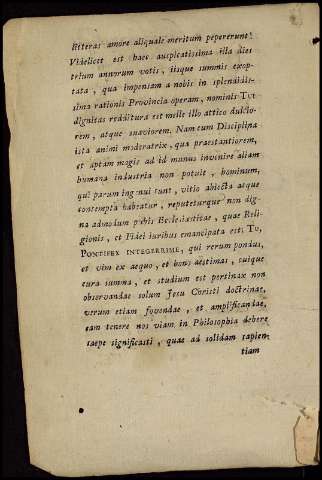 literas amore aliquale meritum pepererunt.
Videlicet est haec auspicatissima illa dies
trium annorum votis, iisque summis exop-
tata, qua impensam a nobis in splendidis-
sima rationis Provincia operam, nominis Tui
dignitas redditura est melle illo attico dulcio-
rem, atque suaviorem. Nam cum Disciplina
ista animi moderatrix, qua praestantiorem,
et aptam magis ad id munus invenire aliam
humana industria non potuit, hominum,
qui parum ingenui sunt, vitio abiecta aeque
contempta habeatur, reputeturque non dig-
na admodum pubis Ecclesiasticae, quae Reli-
gionis, et Fidei iuribus emancipata est; Tu,
PONTIFEX INTEGERRIME, qui rerum pondus,
et vim ex aequo, et bono aestimas, cuique
cura summa, et studium est pertinax non
observandae solum Jesu Christi doctrinae,
verum etiam fovendae, et amplificandae,
eam tenere nos viam in Philosophia debere
saepe significasti, quae ad solidam sapien-
tiam